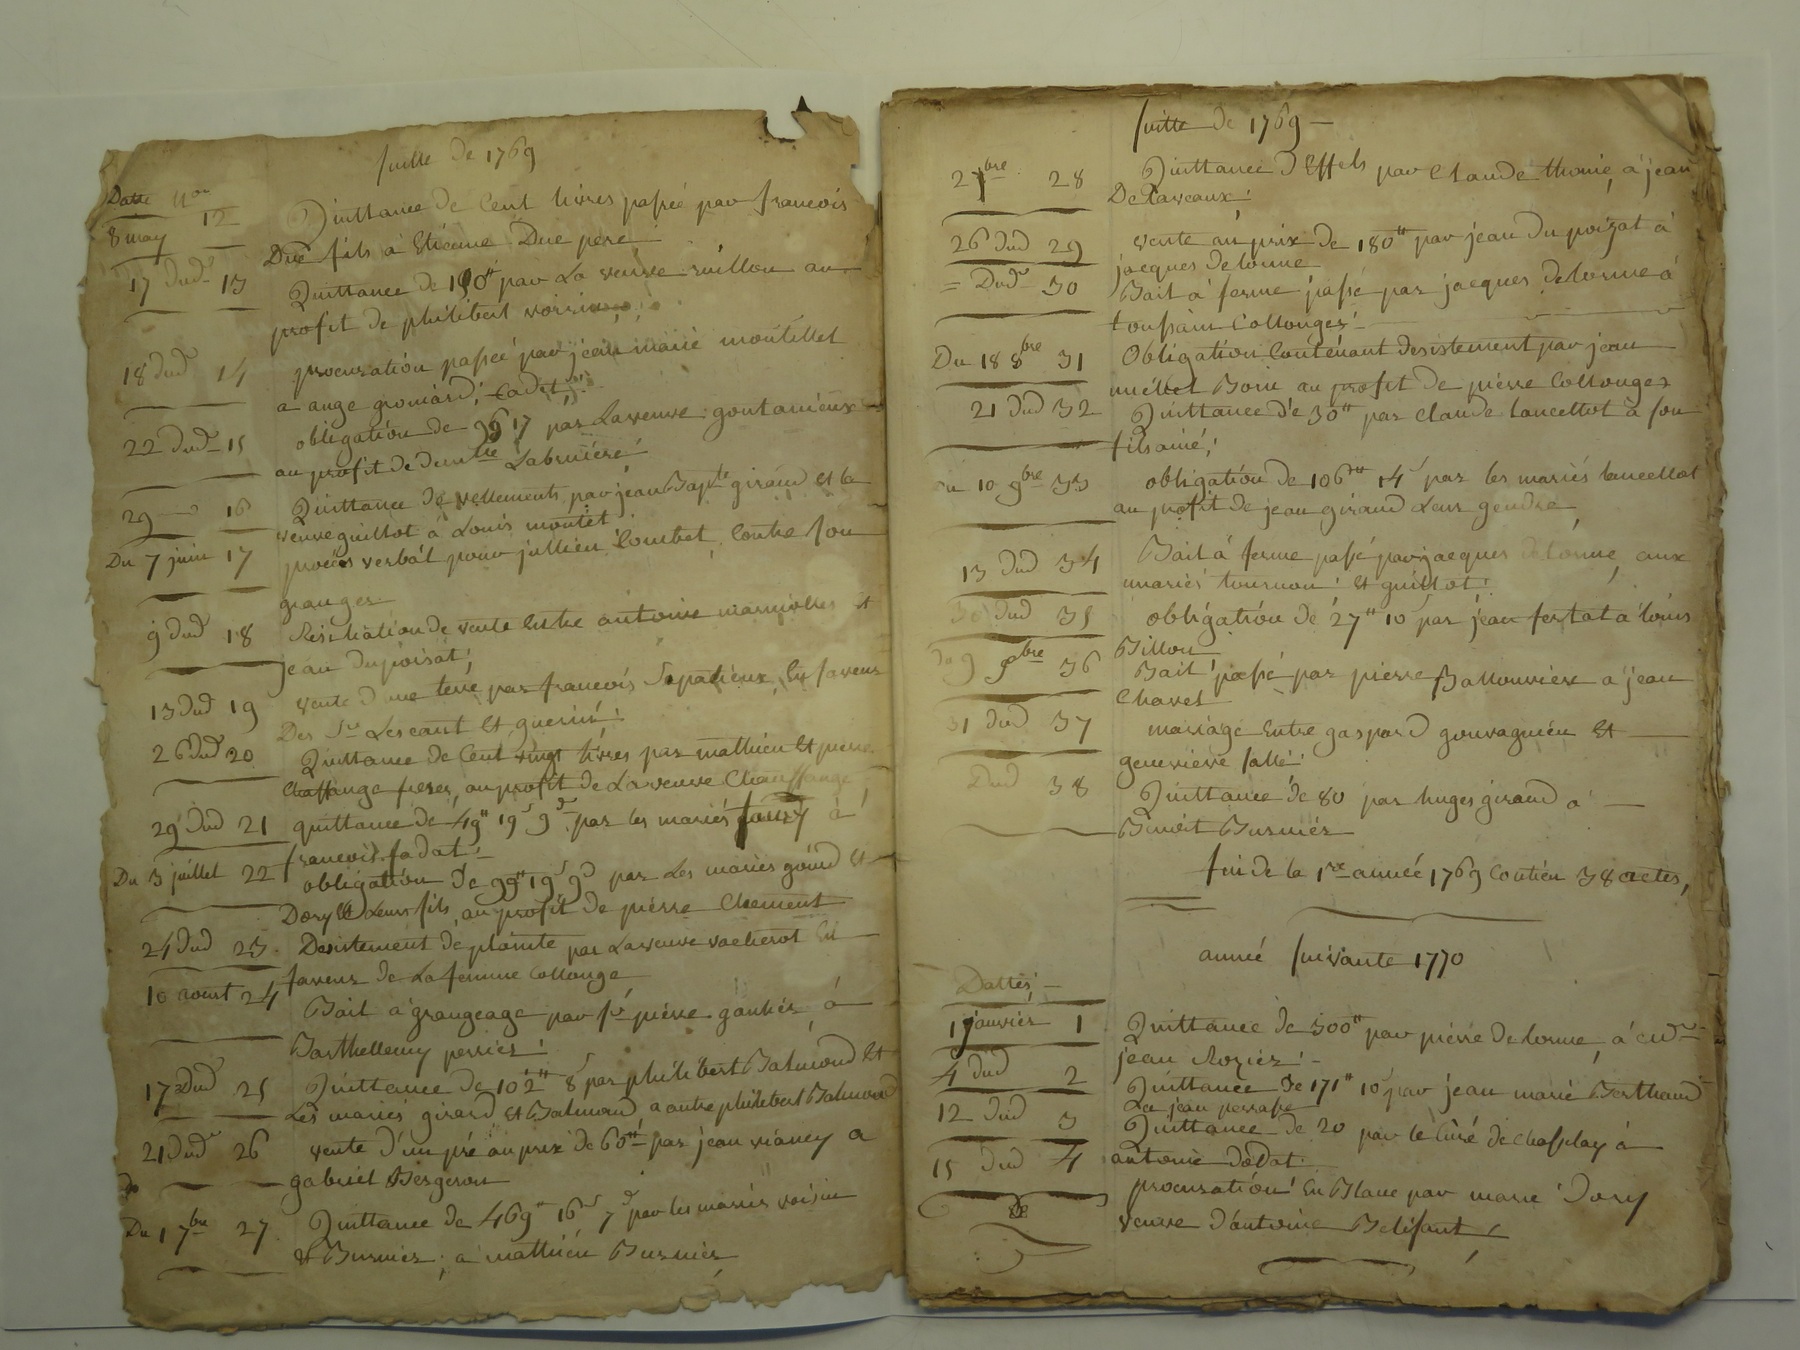 suitte de 1769
Datte nos
8 may 12 Quittance de Cent livres passée par francois
Due fils a Etienne Due pere
17 dud 13 Quittance de 190tt par La veuve
profit de philibert voisin
18 dud 14 procuration passée par jean marie montellet
a ange groniard, Cadet
22 dud 15 obligation de 96 17 par La veuve
au profit de Labruiere
29 16 Quittance de vestements par jean Bapte giraud et la
veuve guillot a Louis montet
Du 7 juin 17 procès verbal pour jullien Combet Contre son
granger
9 dud 18 Resiliation de vente Entre antoine et
jean dupoisat
13 dud 19 vente d'une terre par francois En faveur
Des Srs Lescant Et guerin
26 dud 20 Quittance de Cent vingt livres par mathieu Et pierre
Chaffange freres, au profit de La veuve Chauffange
29 dud 21 quittance de 49tt 19s 9d par les mariés à
francois fadat
Du 3 juillet 22 obligation de 99tt 19s 9d par Les mariés Et
Dory Et Leurs fils, au profit de pierre Clement
24 dud 23 Desistement de plainte par La veuve vacherot En
faveur de La femme Collonge
10 aoust 24 Bail a grangeage par sr pierre gautier à
Barthellemy perrier
17 dud 25 Quittance de 102tt 8s par philibert Balmond Et
Les mariés girard Et Balmond a autre philibert Balmond
21 dud 26 vente d'un pré au prix de 60tt par jean vianey a
gabriel Bergeron
Du 1 7bre 27 Quittance de 469tt 16s 7d par les mariés voisin
et Burnier, a mathieu Burnier
suitte de 1769
2 7bre 28 Quittance d'Effets par Claude thomé, a jean
Delaveaux
26 dud 29 vente au prix de 180tt par jean du poizat à
jacques delorme
Dud 30 Bail a ferme passé par jacques delorme à
toussain Collonges
Du 18 8bre 31 Obligation Contenant desistement par jean
au profit de pierre Collonges
21 dud 32 Quittance de 30tt par Claude lancellot a son
fils ainé
10 9bre 33 obligation de 106tt 4s par les mariés lancellot
au profit de jean giraud Leur gendre
13 dud 34 Bail a ferme passé par jacques delorme, aux
mariés tournou Et guillot
30 dud 35 obligation de 27tt 10s par jean fertat a louis
Billon
Du 9 bre 36 Bail passé par pierre Ballouvière a jean
Chavet
31 dud 37 mariage Entre gaspard gouvagnieu Et
genevieve sallé
Dud 38 Quittance de 80 par hugues giraud a
Benoit Burnier
fin de la 1re année 1769 Contien 38 actes,
année suivante 1770
Dattes
1 janvier 1 Quittance de 300tt par pierre delorme, à
jean Rozier
4 dud 2 Quittance de 171tt 10s par jean marie Berthaud
12 dud 3 Quittance de 20 par le Curé de Chasselay à
antoine dadat
15 dud 4 procuration En Blanc par marie Dory
veuve d'antoine Belifant